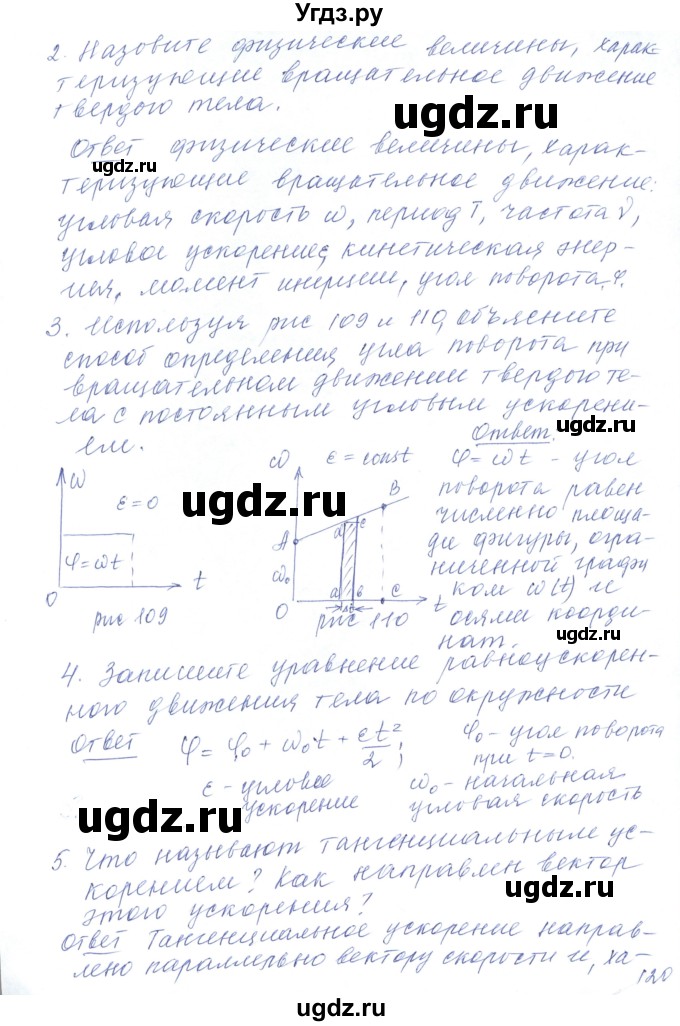 Угдз.ру
2. Назовите физические величины, харак-
теризующие вращательное движение
твердого тела.
ugdz.ru
Ответ физические величины, харак-
ugdz.ru
теризующие вращательное движение:
ugdz.ru
угловая скорость ω, период T, частота ν,
угловое ускорение, кинетическая энер-
ugdz.ru
гия, момент инерции, угол поворота φ.
3. Используя рис 109 и 110, объясните
способ определения угла поворота при
ugdz.ru
вращательном движении твердого те-
ла с постоянным угловым ускорени-
ugdz.ru
ем.
Ответ.
ω
ε = 0
φ = ωt
0
t
рис 109
ω
ε = const
B
A
c
ω₀
0
a
в
C
Δt
t
рис 110
φ = ωt - угол
поворота равен
численно площа-
ди фигуры, огра-
ниченной графи
ком ω(t) и
осями коорди-
нат.
ugdz.ru
ugdz.ru
ugdz.ru
ugdz.ru
4. Запишите уравнение равноускорен-
ного движения тела по окружности
Ответ φ = φ₀ + ω₀t + εt²/2;
φ₀ - угол поворота
при t = 0.
ugdz.ru
ε - угловое
ускорение
ω₀ - начальная
угловая скорость
ugdz.ru
5. Что называют тангенциальным ус-
корением? Как направлен вектор
этого ускорения?
ugdz.ru
Ответ Тангенциальное ускорение направ-
лено параллельно вектору скорости и, ха-
120
ugdz.ru
ugdz.ru